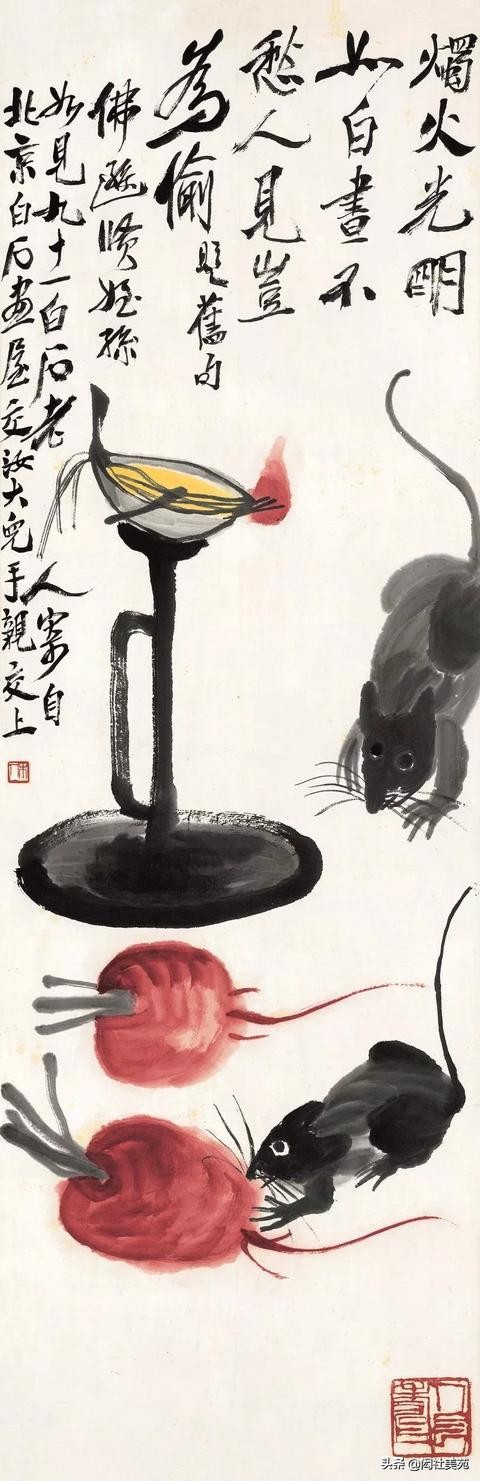 燭火光明
如白晝不
愁人見豈
為偷題舊句
佛賢姪孫
如見九十一白石老人寄自
北京白石畫屋交汝大兒手親交上
头条 @闳社美苑